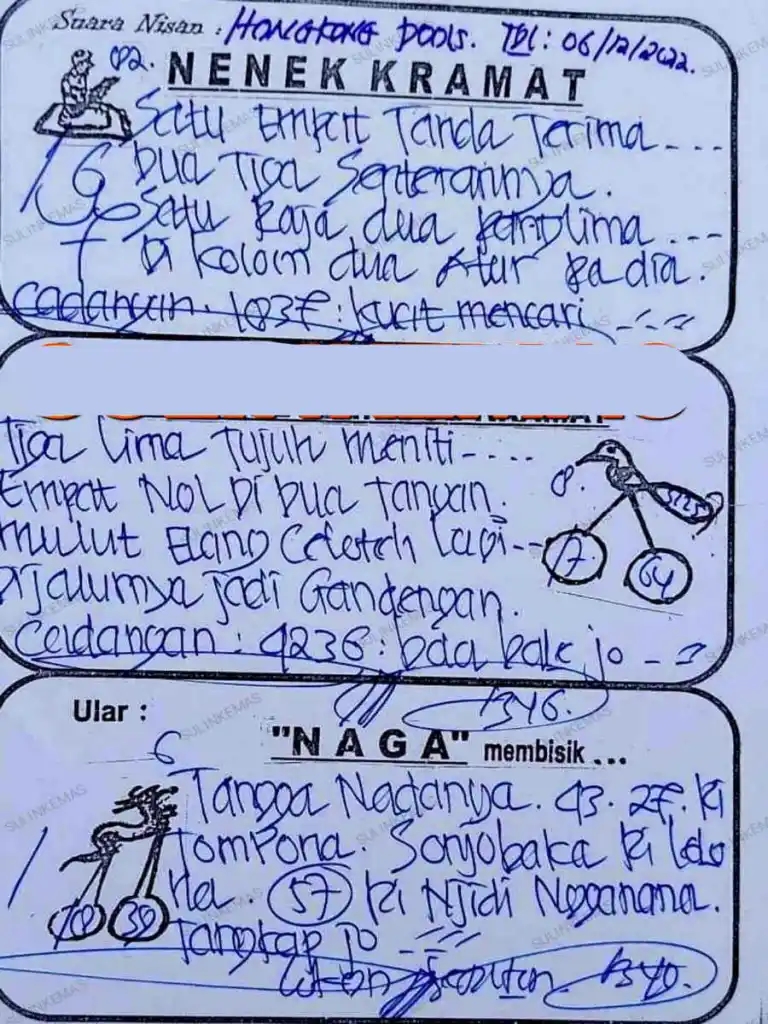 Suara Nisan : HONGKONG POOLS. TGL: 06/12/2022.
02. NENEK KRAMAT
Satu Empat Tanda Terima ---
Dua Tiga Senterannya.
Satu Raja dua Panglima ---
Di kolom dua Atur
Cadangan. 1837: kucit mencari
Tiga lima Tujuh meniti ----
Empat NOL Di Dua Tangan.
8.
mulut Elang Celoteh Lagi --
17.
64
Dijalurnya jadi Gandengan.
Cadangan : 4236 :
1346.
Ular :
6
"NAGA" membisik ...
Tangga Nadanya. 43. 27. Ki
Tompona. Sonjobaka Ki
57 Ki Njidi Noganana.
39
Tangkap jo
1340.